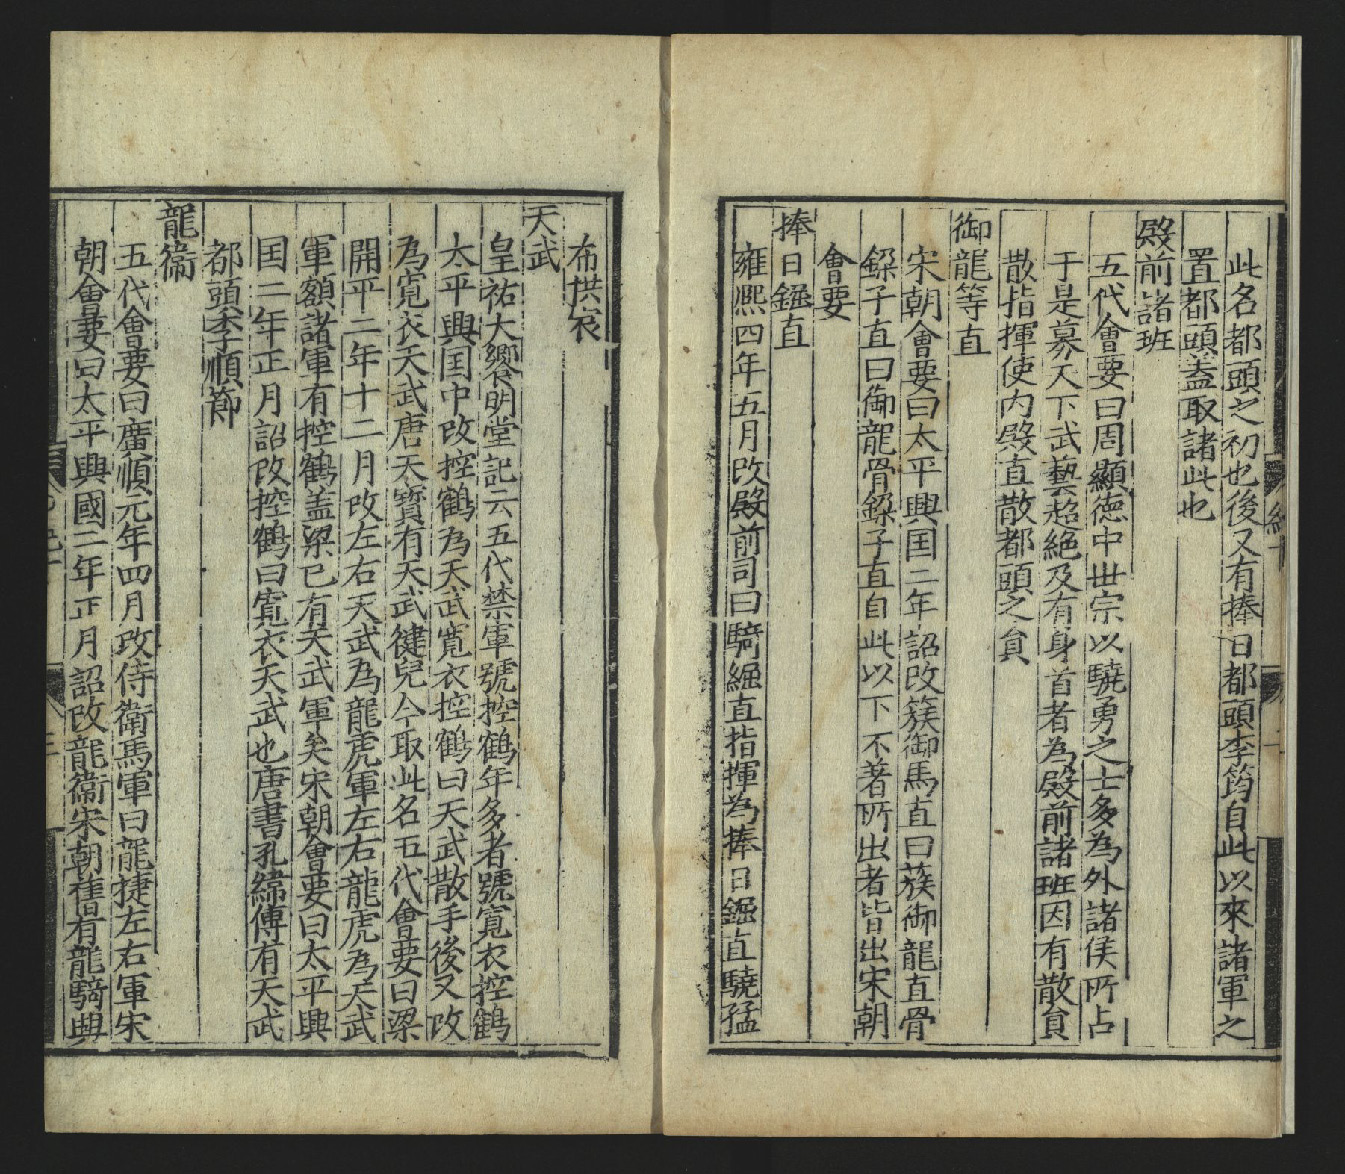 此名都頭之初也後又有捧日都頭李筠自此以來諸軍之
置都頭蓋取諸此也
殿前諸班
五代會要曰周顯德中世宗以驍勇之士多為外諸侯所占
于是募天下武藝超絶及有身首者為殿前諸班因有散貟
散指揮使内殿直散都頭之貟
御龍等直
宋朝會要曰太平興囯二年詔改簇御馬直曰蔟御龍直骨
鏁子直曰御龍骨鏁子直自此以下不著所出者皆出宋朝
會要
捧日𨰃直
雍熈四年五月改殿前司曰騎𦀗直指揮為捧日𨰃直驍猛
布拱宸
天武
皇祐大饗明堂記云五代禁軍號控鶴年多者號寛衣控鶴
太平興囯中改控鶴為天武寛衣控鶴曰天武散手後又改
為寛衣天武唐天寶有天武健兒今取此名五代會要曰梁
開平二年十二月改左右天武為龍虎軍左右龍虎為天武
軍額諸軍有控鶴盖梁已有天武軍矣宋朝會要曰太平興
囯二年正月詔改控鶴曰寛衣天武也唐書孔緯傳有天武
都頭李順節
龍衞
五代會要曰廣順元年四月改侍衛馬軍曰龍捷左右軍宋
朝會要曰太平興國二年正月詔改龍衞宋朝舊有龍騎與